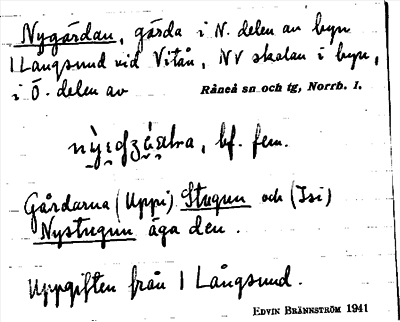 Nygärdan, gärda i N. delen av byn
1 Långsund vid Vitån, NV skolan i byn,
i Ö. delen av Råneå sn och tg, Norrb. l.
bf. fem.
Gårdarna (Uppi) Stugun och (Isi)
Nystugun äga den.
Uppgiften från 1 Långsund.
EDVIN BRÄNNSTRÖM 1941